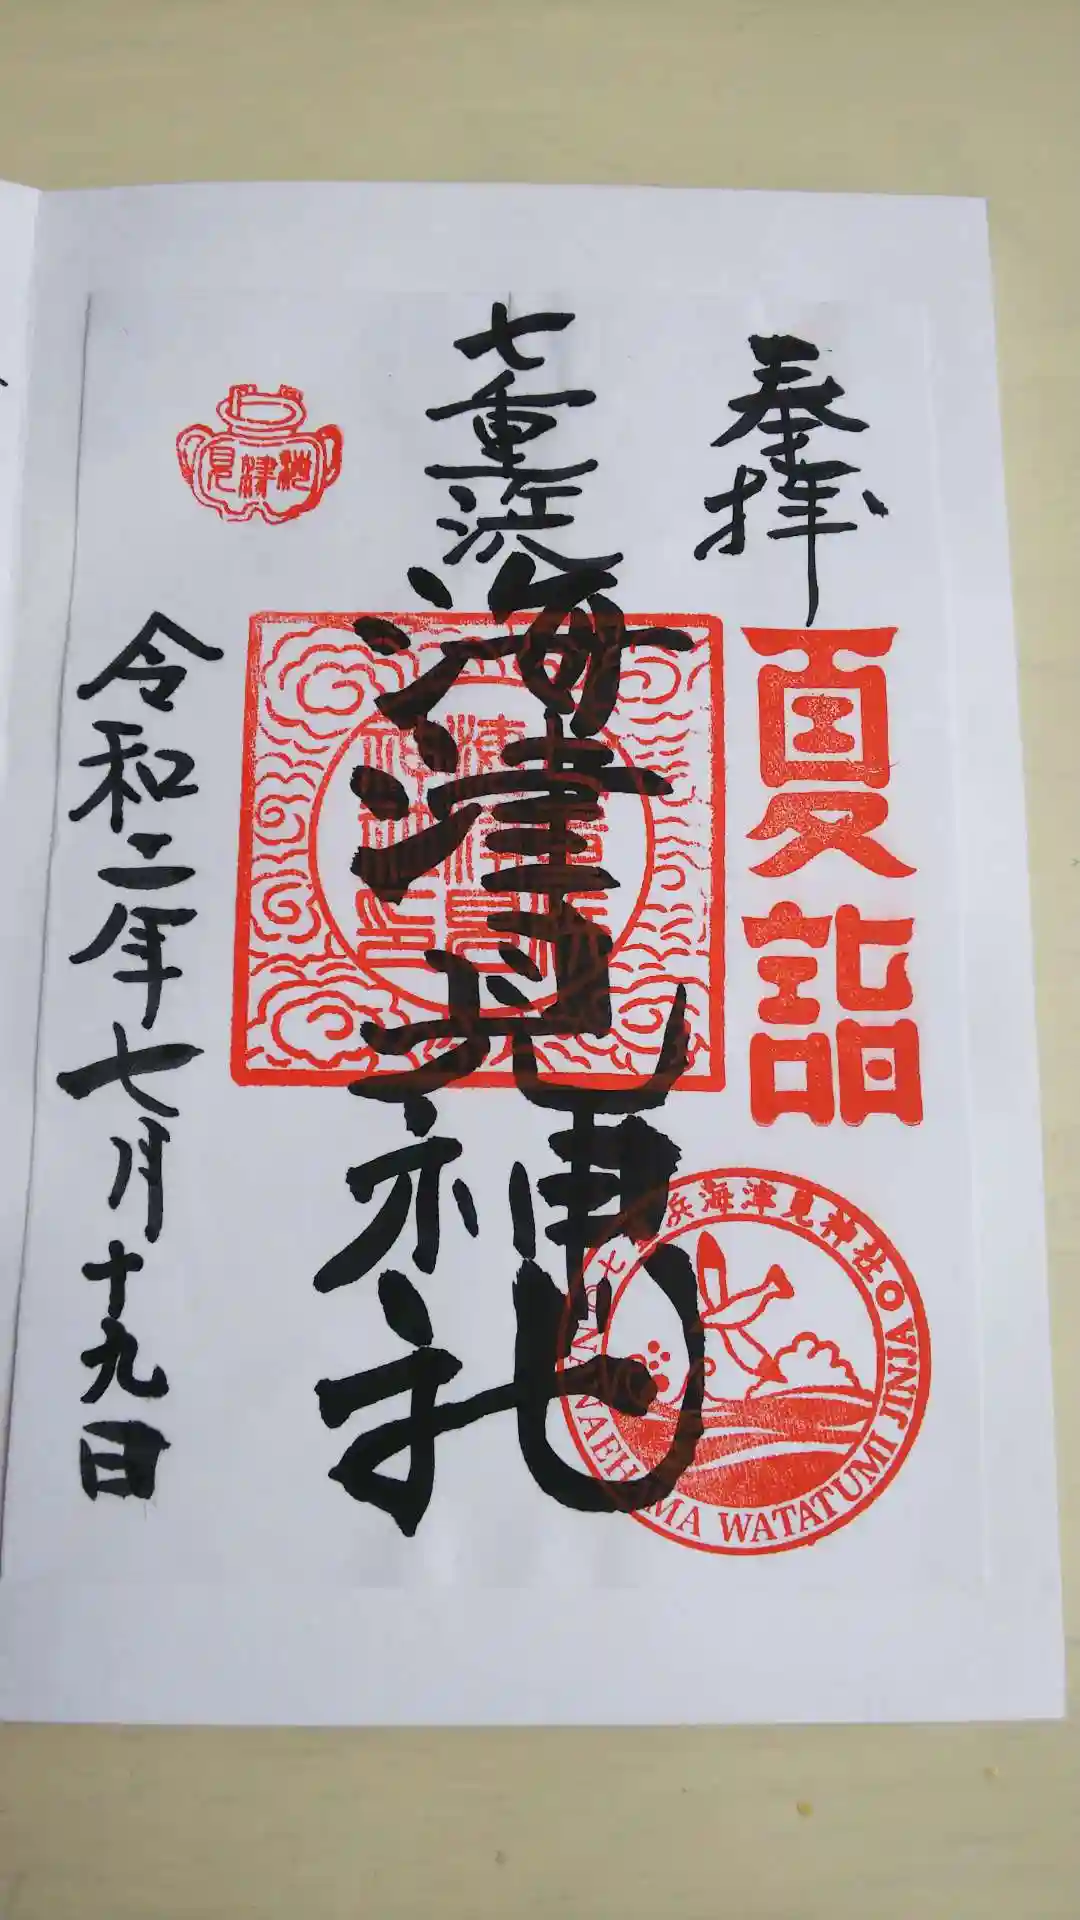 奉拝
夏詣
七重浜
海津見神社
七重浜海津見神社
NANAEHAMA WATATUMI JINJA
海津見
令和二年七月十九日